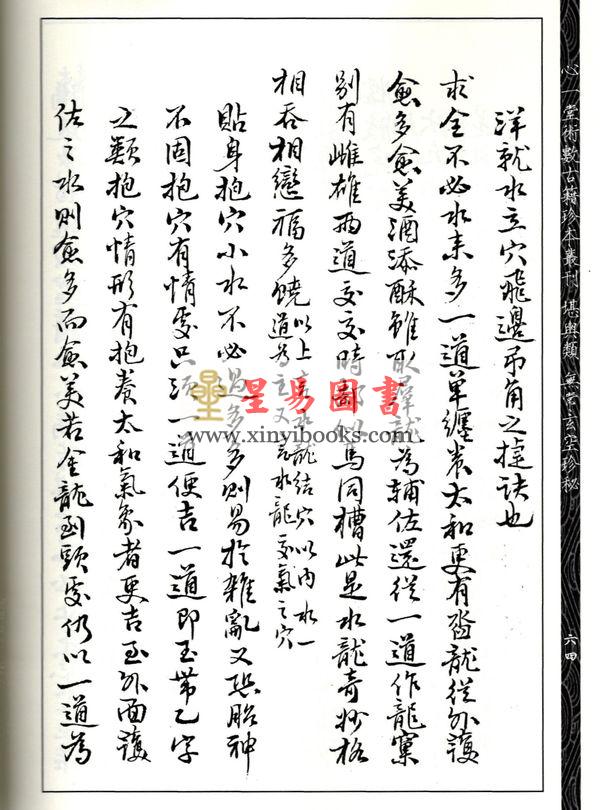 洋就水立穴飛邊吊角之捷訣也
求全不必水來多一道單纏養太和更有沓龍從外護
愈多愈美酒添酥雖取群龍為輔佐還從一道作龍窠
別有雌雄兩道交交時鄰似馬同槽此是水龍奇妙格
相吞相戀福多饒以上言水龍結穴以內水一
道為主又言水龍交氣之穴
貼身抱穴小水不必過多多則易於雜亂又恐胎神
不固抱穴有情處只須一道便吉一道即玉帶乙字
之類抱穴情形有抱養太和氣象者更吉至外面護
佐之水則愈多而愈美若金龍到頭處仍以一道為
心一堂術數古籍珍本叢刊 堪輿類 無常玄空珍秘
六四
星易圖書
www.xinyibooks.com